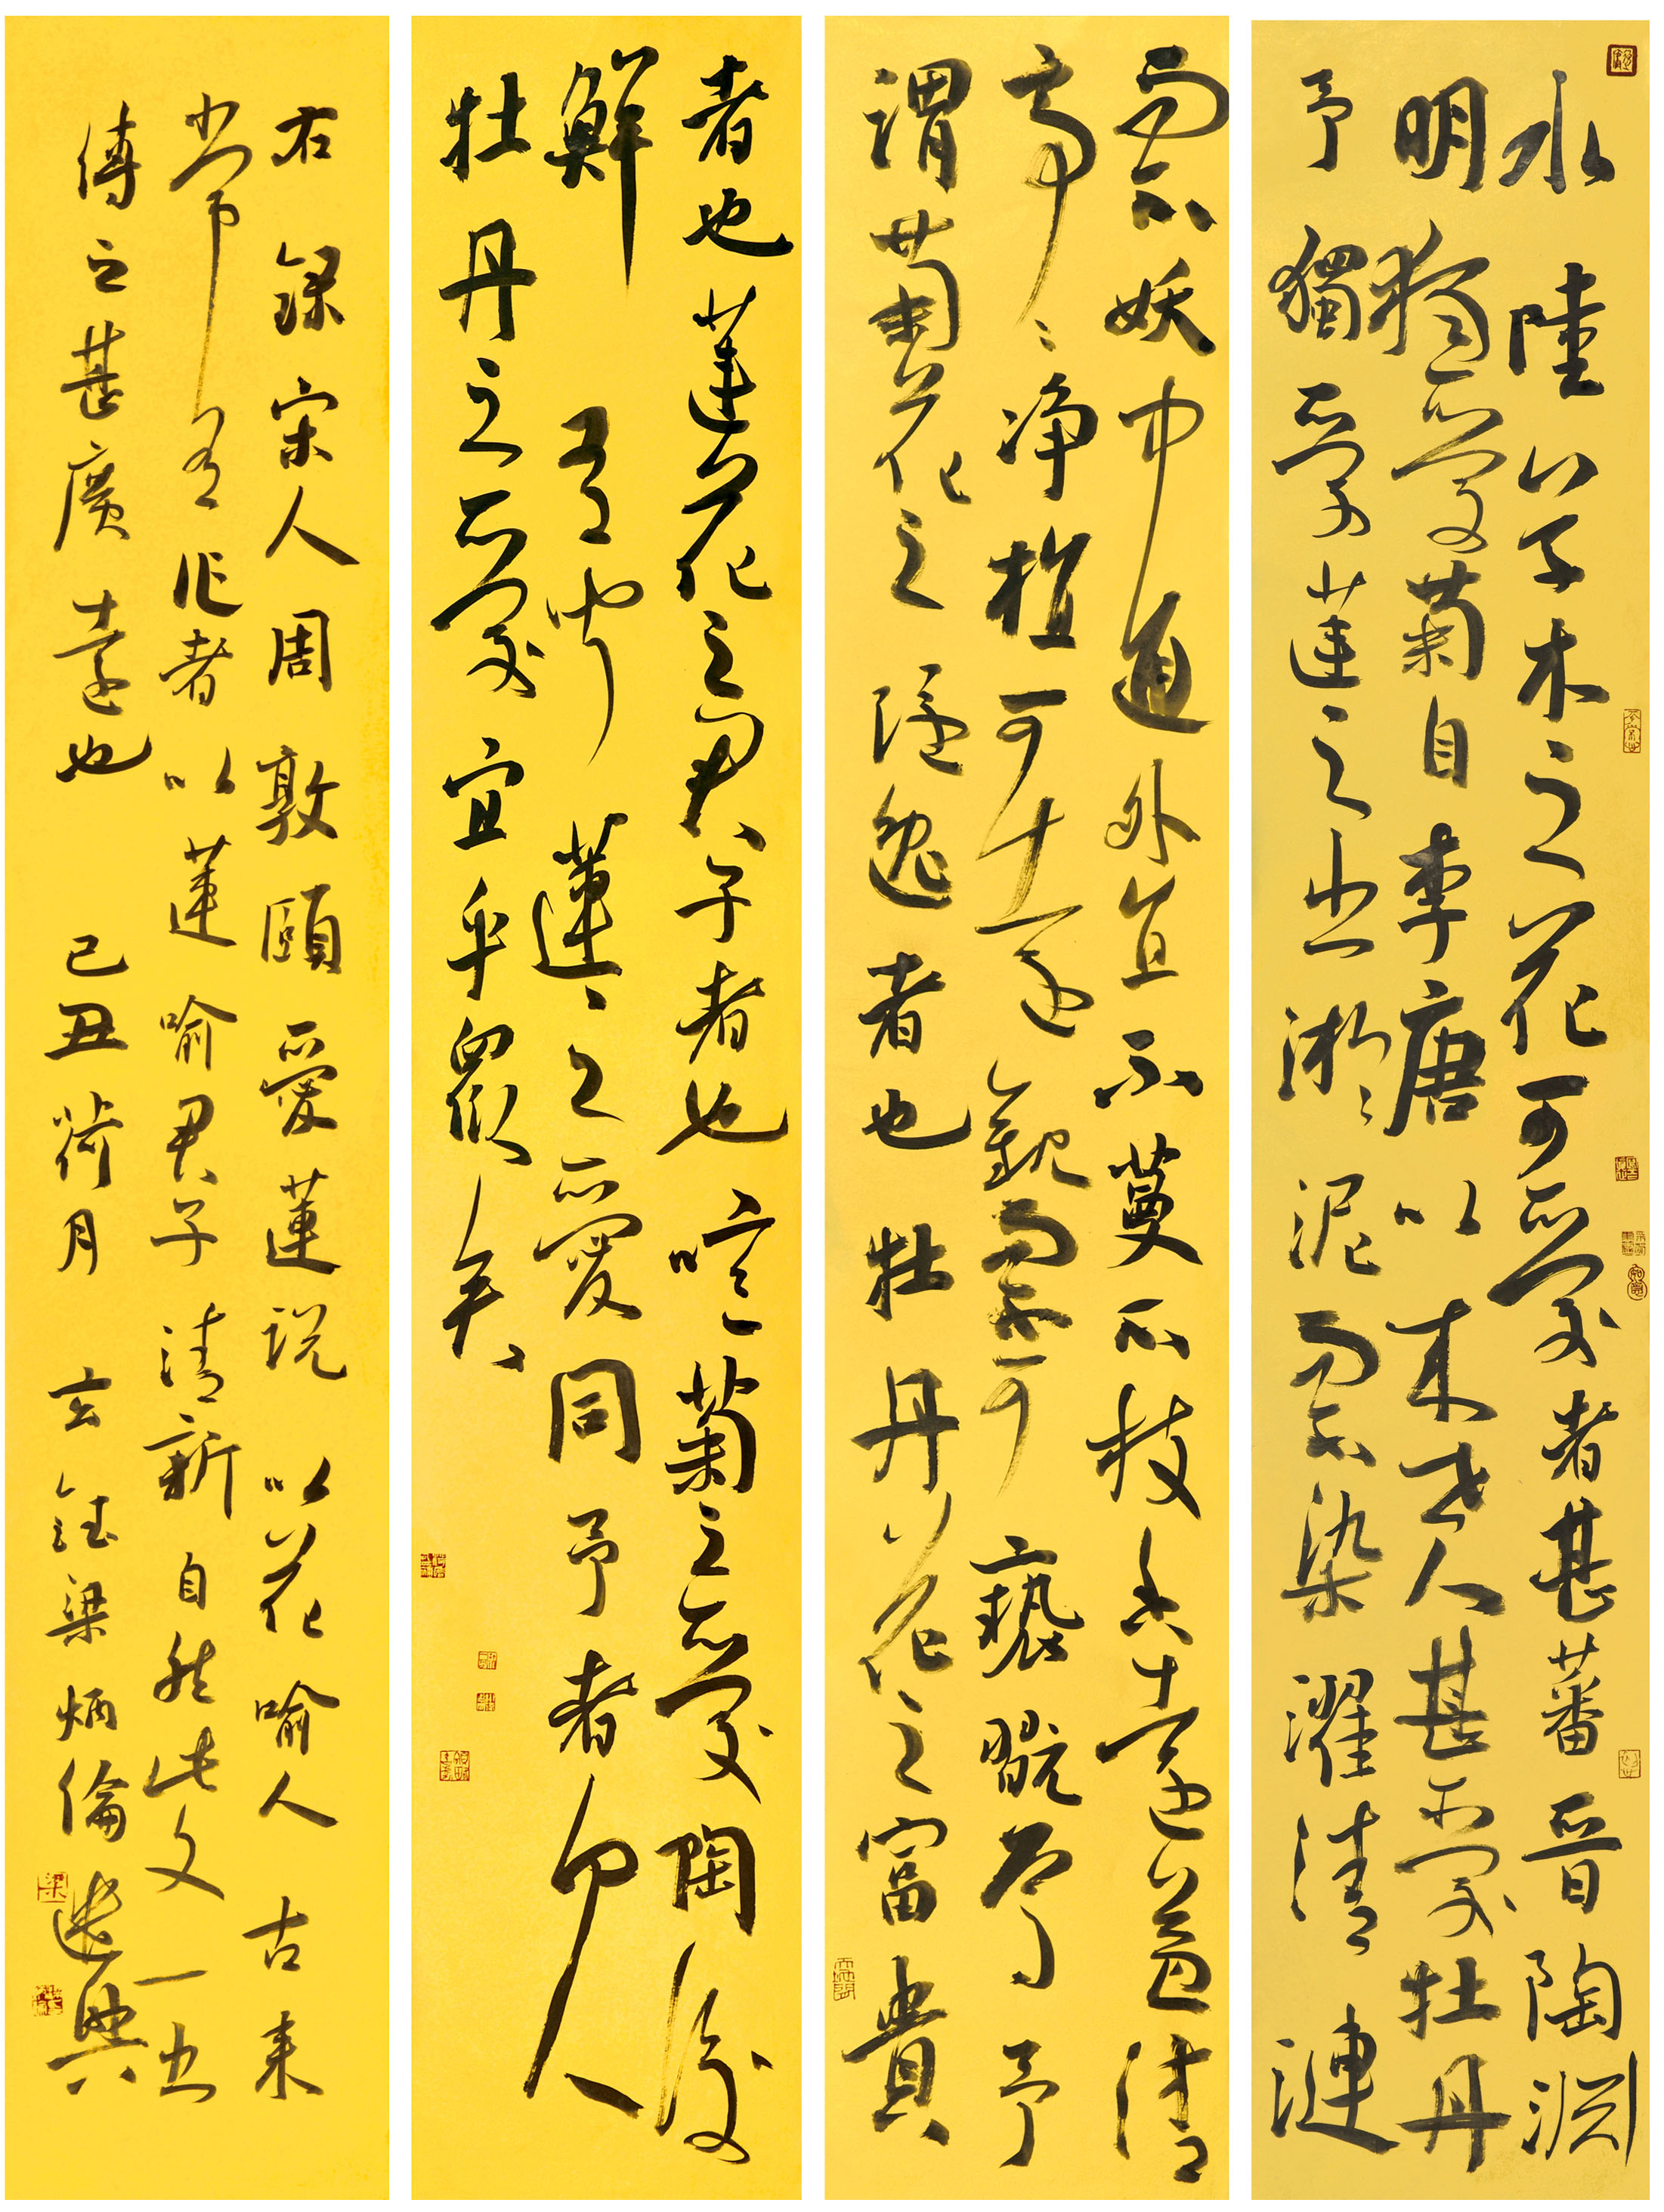 水陸艸木之花可愛者甚蕃晉陶淵
明獨愛菊自李唐以來世人甚愛牡丹
予獨愛蓮之出淤泥而不染濯清漣
而不妖中通外直不蔓不枝香遠益清
亭〻净植可遠觀而不可褻翫焉予
謂菊花之隱逸者也牡丹花之富貴
者也蓮花之君子者也噫菊之愛陶後
鮮有聞蓮之愛同予者何人
牡丹之愛宜乎眾矣
右錄宋人周敦頤愛蓮說以花喻人古來
常有作者以蓮喻君子清新自然此文一出
傳之甚廣遠也 己丑荷月 玄梁炳倫遣興